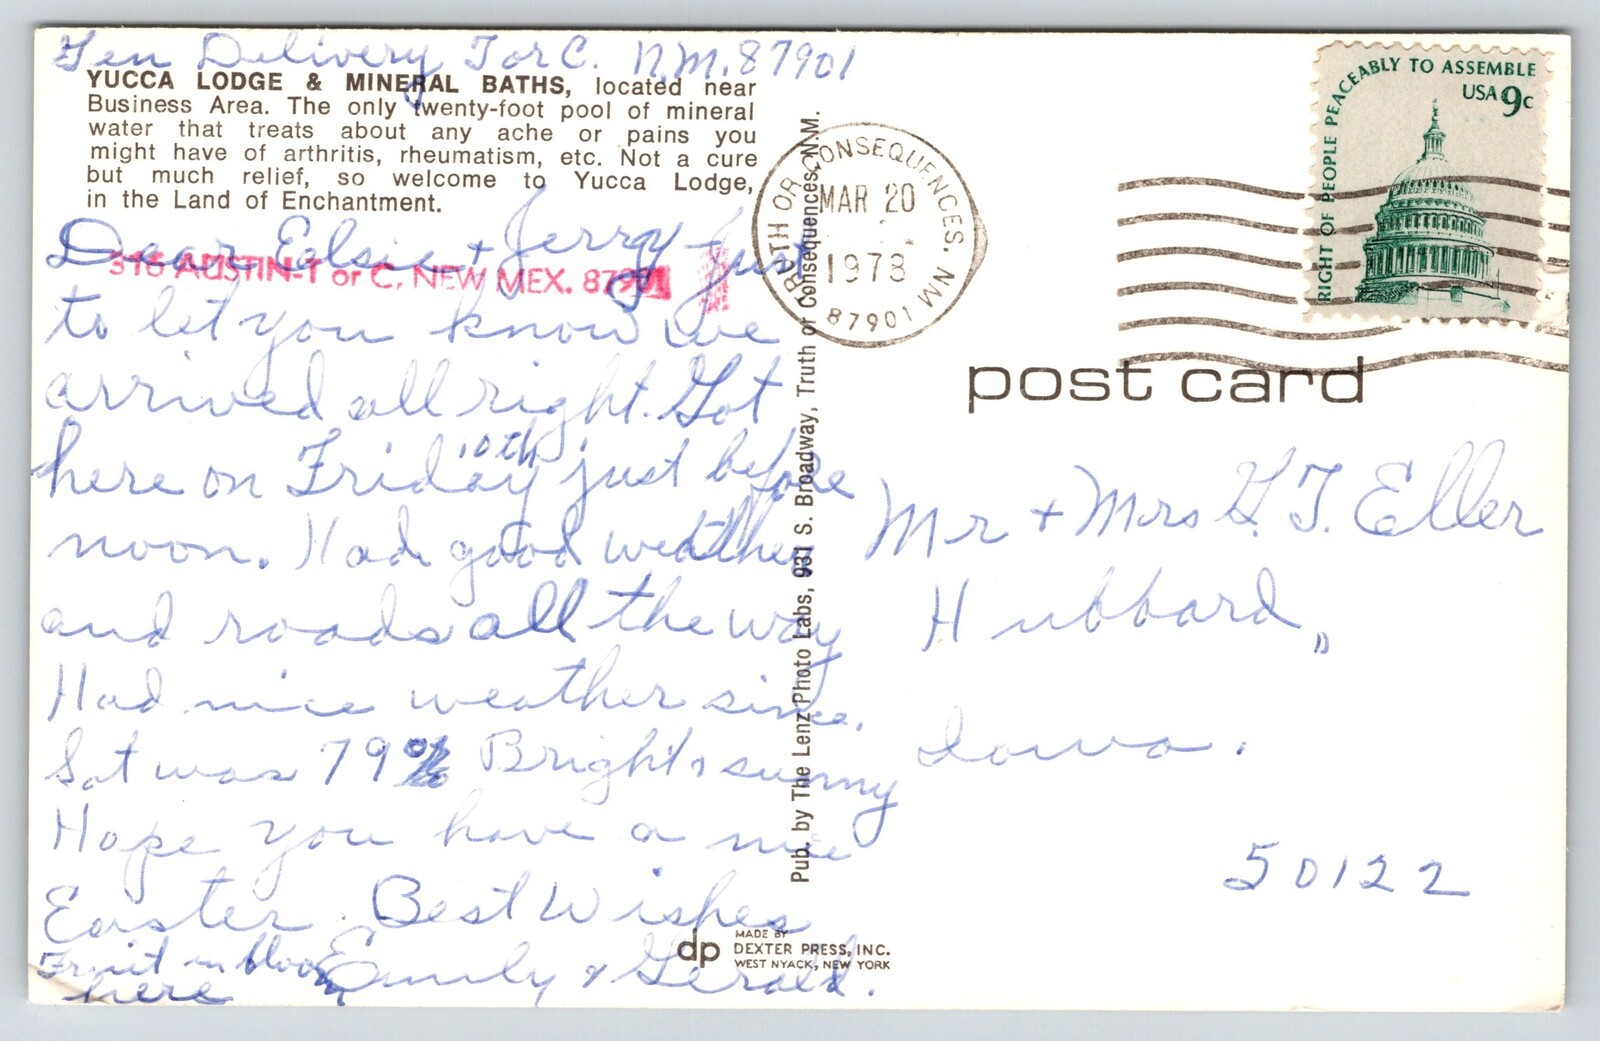 Gen Delivery T or C. N.M. 87901
YUCCA LODGE & MINERAL BATHS, located near
Business Area. The only twenty-foot pool of mineral
water that treats about any ache or pains you
might have of arthritis, rheumatism, etc. Not a cure
but much relief, so welcome to Yucca Lodge,
in the Land of Enchantment.
316 AUSTIN-T or C. NEW MEX. 87901
Dear Elsie + Jerry - Just
to let you know we
arrived all right. Got
here on Friday 10th just before
noon. Had good weather
and roads all the way
Had nice weather since.
Sat was 79° Bright & sunny
Hope you have a nice
Easter. Best Wishes
Emily & Gerald.
Fruit in bloom
here
Pub. by The Lenz Photo Labs, 931 S. Broadway, Truth or Consequences, N.M.
TRUTH OR CONSEQUENCES, NM
MAR 20
1978
87901
RIGHT OF PEOPLE PEACEABLY TO ASSEMBLE
USA 9c
post card
Mr + Mrs H. T. Eller
Hubbard,,
Iowa.
50122
dp
MADE BY
DEXTER PRESS, INC.
WEST NYACK, NEW YORK